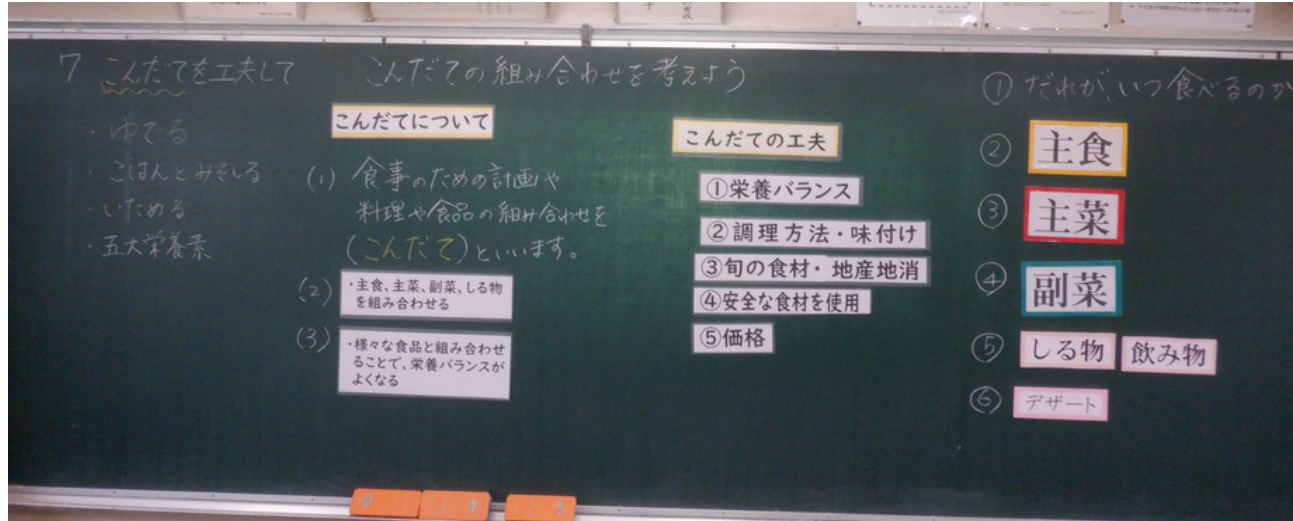 7 こんだてを工夫して
・ゆでる
・ごはんとみそしる
・いためる
・五大栄養素
こんだての組み合わせを考えよう
こんだてについて
(1) 食事のための計画や
料理や食品の組み合わせを
(こんだて)といいます。
(2) ・主食、主菜、副菜、しる物
を組み合わせる
(3) ・様々な食品と組み合わせ
ることで、栄養バランスが
よくなる
こんだての工夫
①栄養バランス
②調理方法・味付け
③旬の食材・地産地消
④安全な食材を使用
⑤価格
① だれが、いつ食べるのか
② 主食
③ 主菜
④ 副菜
⑤ しる物 飲み物
⑥ デザート